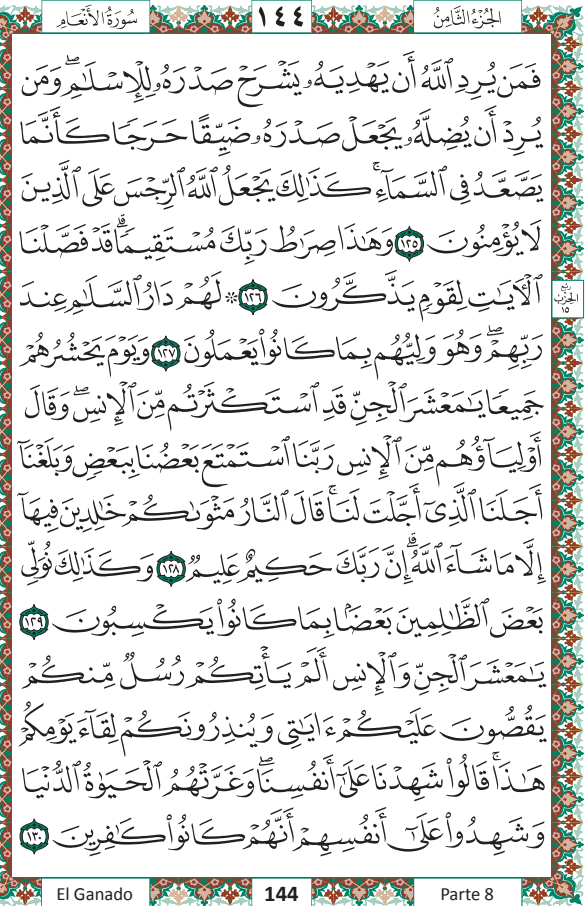 الجُزْءُ الثَّامِنُ ١٤٤ سُورَةُ الأَنْعَامِ
فَمَن يُرِدِ ٱللَّهُ أَن يَهْدِيَهُۥ يَشْرَحْ صَدْرَهُۥ لِلْإِسْلَٰمِۖ وَمَن
يُرِدْ أَن يُضِلَّهُۥ يَجْعَلْ صَدْرَهُۥ ضَيِّقًا حَرَجًا كَأَنَّمَا
يَصَّعَّدُ فِي ٱلسَّمَآءِۚ كَذَٰلِكَ يَجْعَلُ ٱللَّهُ ٱلرِّجْسَ عَلَى ٱلَّذِينَ
لَا يُؤْمِنُونَ ١٢٥ وَهَٰذَا صِرَٰطُ رَبِّكَ مُسْتَقِيمًاۗ قَدْ فَصَّلْنَا
ٱلْأٓيَٰتِ لِقَوْمٍ يَذَّكَّرُونَ ١٢٦ ۞ لَهُمْ دَارُ ٱلسَّلَٰمِ عِندَ
ربع الحزب ١٥
رَبِّهِمْۖ وَهُوَ وَلِيُّهُم بِمَا كَانُوا۟ يَعْمَلُونَ ١٢٧ وَيَوْمَ يَحْشُرُهُمْ
جَمِيعًا يَٰمَعْشَرَ ٱلْجِنِّ قَدِ ٱسْتَكْثَرْتُم مِّنَ ٱلْإِنسِۖ وَقَالَ
أَوْلِيَآؤُهُم مِّنَ ٱلْإِنسِ رَبَّنَا ٱسْتَمْتَعَ بَعْضُنَا بِبَعْضٍ وَبَلَغْنَآ
أَجَلَنَا ٱلَّذِىٓ أَجَّلْتَ لَنَاۚ قَالَ ٱلنَّارُ مَثْوَىٰكُمْ خَٰلِدِينَ فِيهَآ
إِلَّا مَا شَآءَ ٱللَّهُۗ إِنَّ رَبَّكَ حَكِيمٌ عَلِيمٌ ١٢٨ وَكَذَٰلِكَ نُوَلِّى
بَعْضَ ٱلظَّٰلِمِينَ بَعْضًۢا بِمَا كَانُوا۟ يَكْسِبُونَ ١٢٩
يَٰمَعْشَرَ ٱلْجِنِّ وَٱلْإِنسِ أَلَمْ يَأْتِكُمْ رُسُلٌ مِّنكُمْ
يَقُصُّونَ عَلَيْكُمْ ءَايَٰتِى وَيُنذِرُونَكُمْ لِقَآءَ يَوْمِكُمْ
هَٰذَاۚ قَالُوا۟ شَهِدْنَا عَلَىٰٓ أَنفُسِنَاۖ وَغَرَّتْهُمُ ٱلْحَيَوٰةُ ٱلدُّنْيَا
وَشَهِدُوا۟ عَلَىٰٓ أَنفُسِهِمْ أَنَّهُمْ كَانُوا۟ كَٰفِرِينَ ١٣٠
El Ganado 144 Parte 8